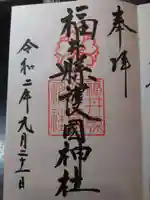 奉拝
福井縣護國神社
令和二年九月二十一日